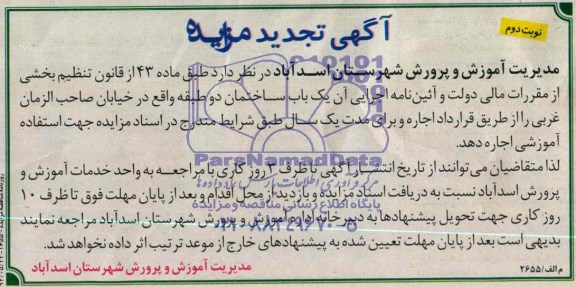 نوبت دوم
آگهی تجدید مزایده
مدیریت آموزش و پرورش شهرستان اسدآباد در نظر دارد طبق ماده ۴۳ از قانون تنظیم بخشی
از مقررات مالی دولت و آئین‌نامه اجرایی آن یک باب ساختمان دو طبقه واقع در خیابان صاحب الزمان
غربی را از طریق قرارداد اجاره و برای مدت یک سال طبق شرایط مندرج در اسناد مزایده جهت استفاده
آموزشی اجاره دهد.
لذا متقاضیان می‌توانند از تاریخ انتشار آگهی تا ظرف روز کاری با مراجعه به واحد خدمات آموزش و
پرورش اسدآباد نسبت به دریافت اسناد مزایده و بازدید از محل اقدام و بعد از پایان مهلت فوق تا ظرف ۱۰
روز کاری جهت تحویل پیشنهادها به دبیرخانه اداره آموزش و پرورش شهرستان اسدآباد مراجعه نمایند
بدیهی است بعد از پایان مهلت تعیین شده به پیشنهادهای خارج از موعد ترتیب اثر داده نخواهد شد.
مدیریت آموزش و پرورش شهرستان اسدآباد
م الف/۲۶۵۵
ParsNamadData
پایگاه اطلاع رسانی مناقصه و مزایده
۰۲۱-۸۸۳۴۹۶۷۰-۵